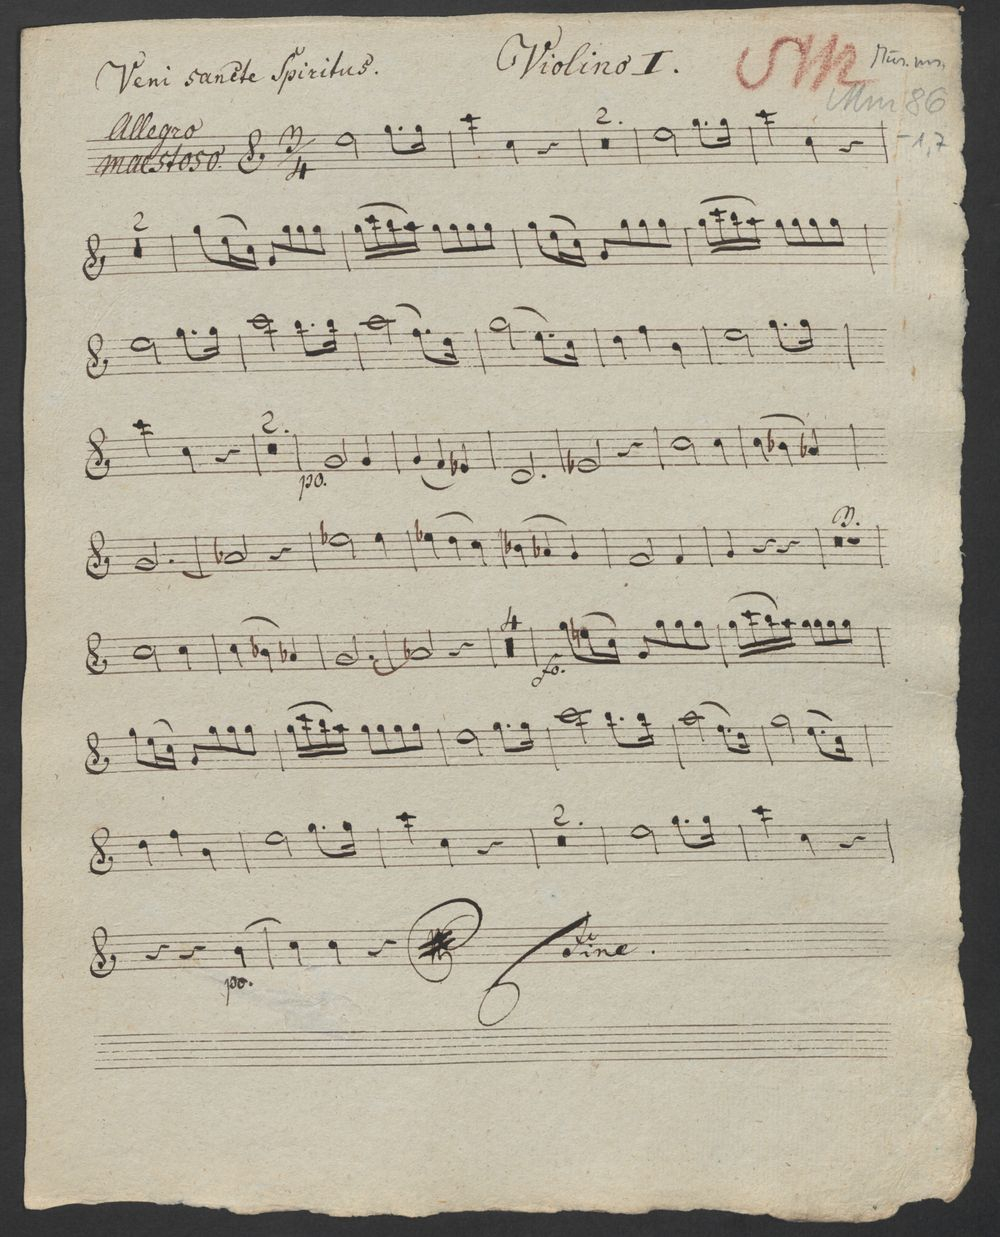 Veni sancte Spiritus. Violino I. Mus. ms.
Mm 86
- 1,7
Allegro
maestoso. 3/4 2.
2
2.
po.
3.
4
fo.
2.
po. Fine.